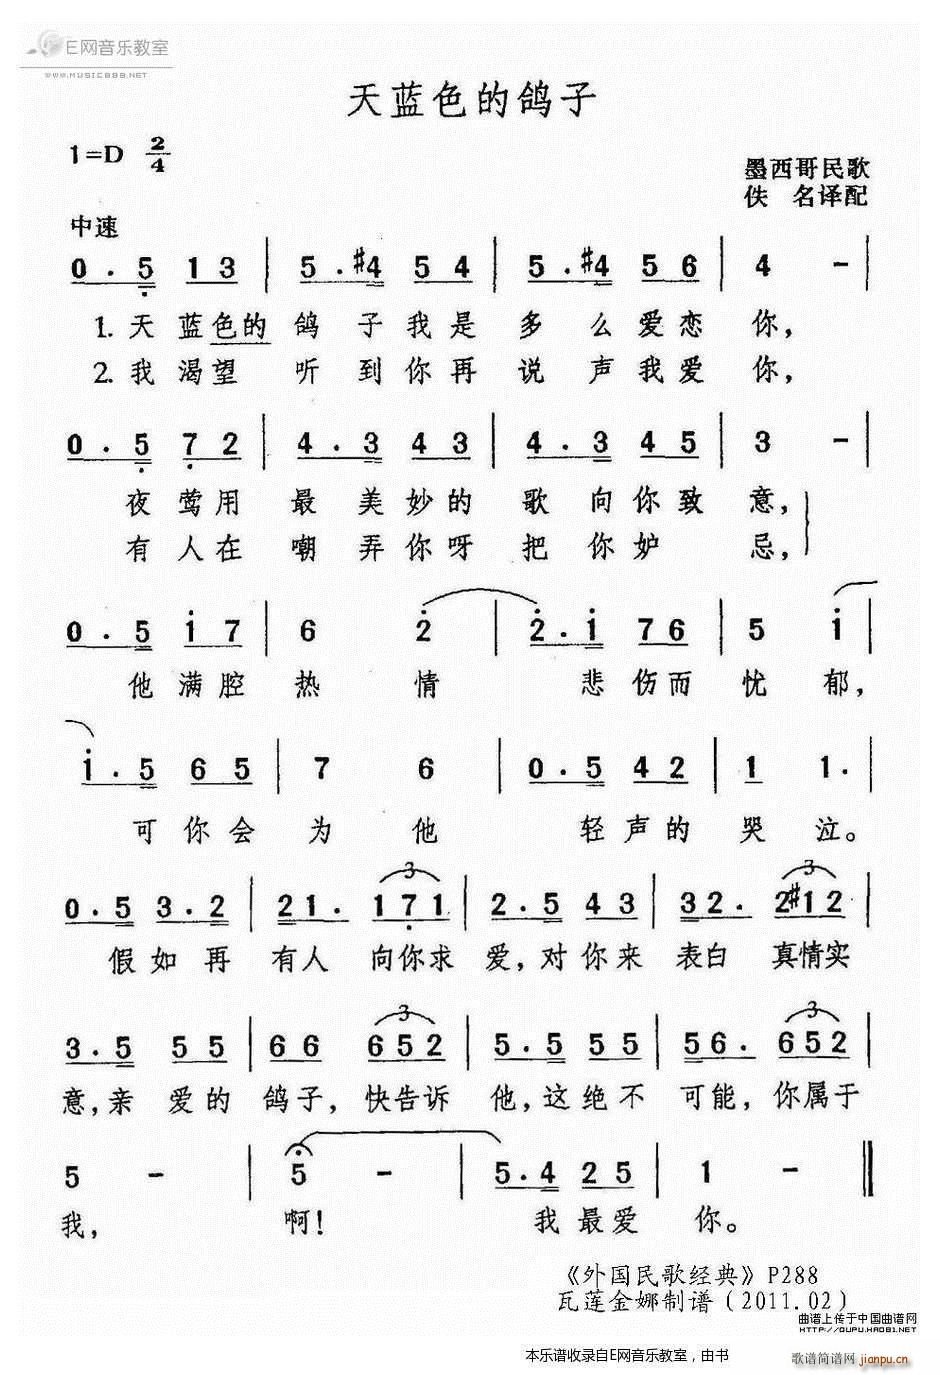 E网音乐教室
www.MUSIC888.NET
天蓝色的鸽子
1=D 2/4
墨西哥民歌
佚 名译配
中速
0 . 5 1 3 | 5 . #4 5 4 | 5 . #4 5 6 | 4 - |
1. 天 蓝色的 鸽 子 我 是 多 么 爱 恋 你，
2. 我 渴望 听 到 你 再 说 声 我 爱 你，
0 . 5 7 2 | 4 . 3 4 3 | 4 . 3 4 5 | 3 - |
夜 莺 用 最 美 妙 的 歌 向 你 致 意，
有 人 在 嘲 弄 你 呀 把 你 妒 忌，
0 . 5 1 7 | 6 2 | 2 . 1 7 6 | 5 1 |
他 满 腔 热 情 悲 伤 而 忧 郁，
1 . 5 6 5 | 7 6 | 0 . 5 4 2 | 1 1 . |
可 你 会 为 他 轻 声 的 哭 泣。
3 3
0 . 5 3 . 2 | 2 1 . 1 7 1 | 2 . 5 4 3 | 3 2 . 2 #1 2 |
假 如 再 有 人 向 你 求 爱，对 你 来 表 白 真 情 实
3 3
3 . 5 5 5 | 6 6 6 5 2 | 5 . 5 5 5 | 5 6 . 6 5 2 |
意，亲 爱 的 鸽 子，快 告 诉 他，这 绝 不 可 能，你 属 于
5 - | 5 - | 5 . 4 2 5 | 1 - ‖
我， 啊！ 我 最 爱 你。
《外国民歌经典》P288
瓦莲金娜制谱（2011.02）
曲谱上传于中国曲谱网
HTTP://GUPU.HAO81.NET
本乐谱收录自E网音乐教室，由书
歌谱简谱网 jianpu.cn